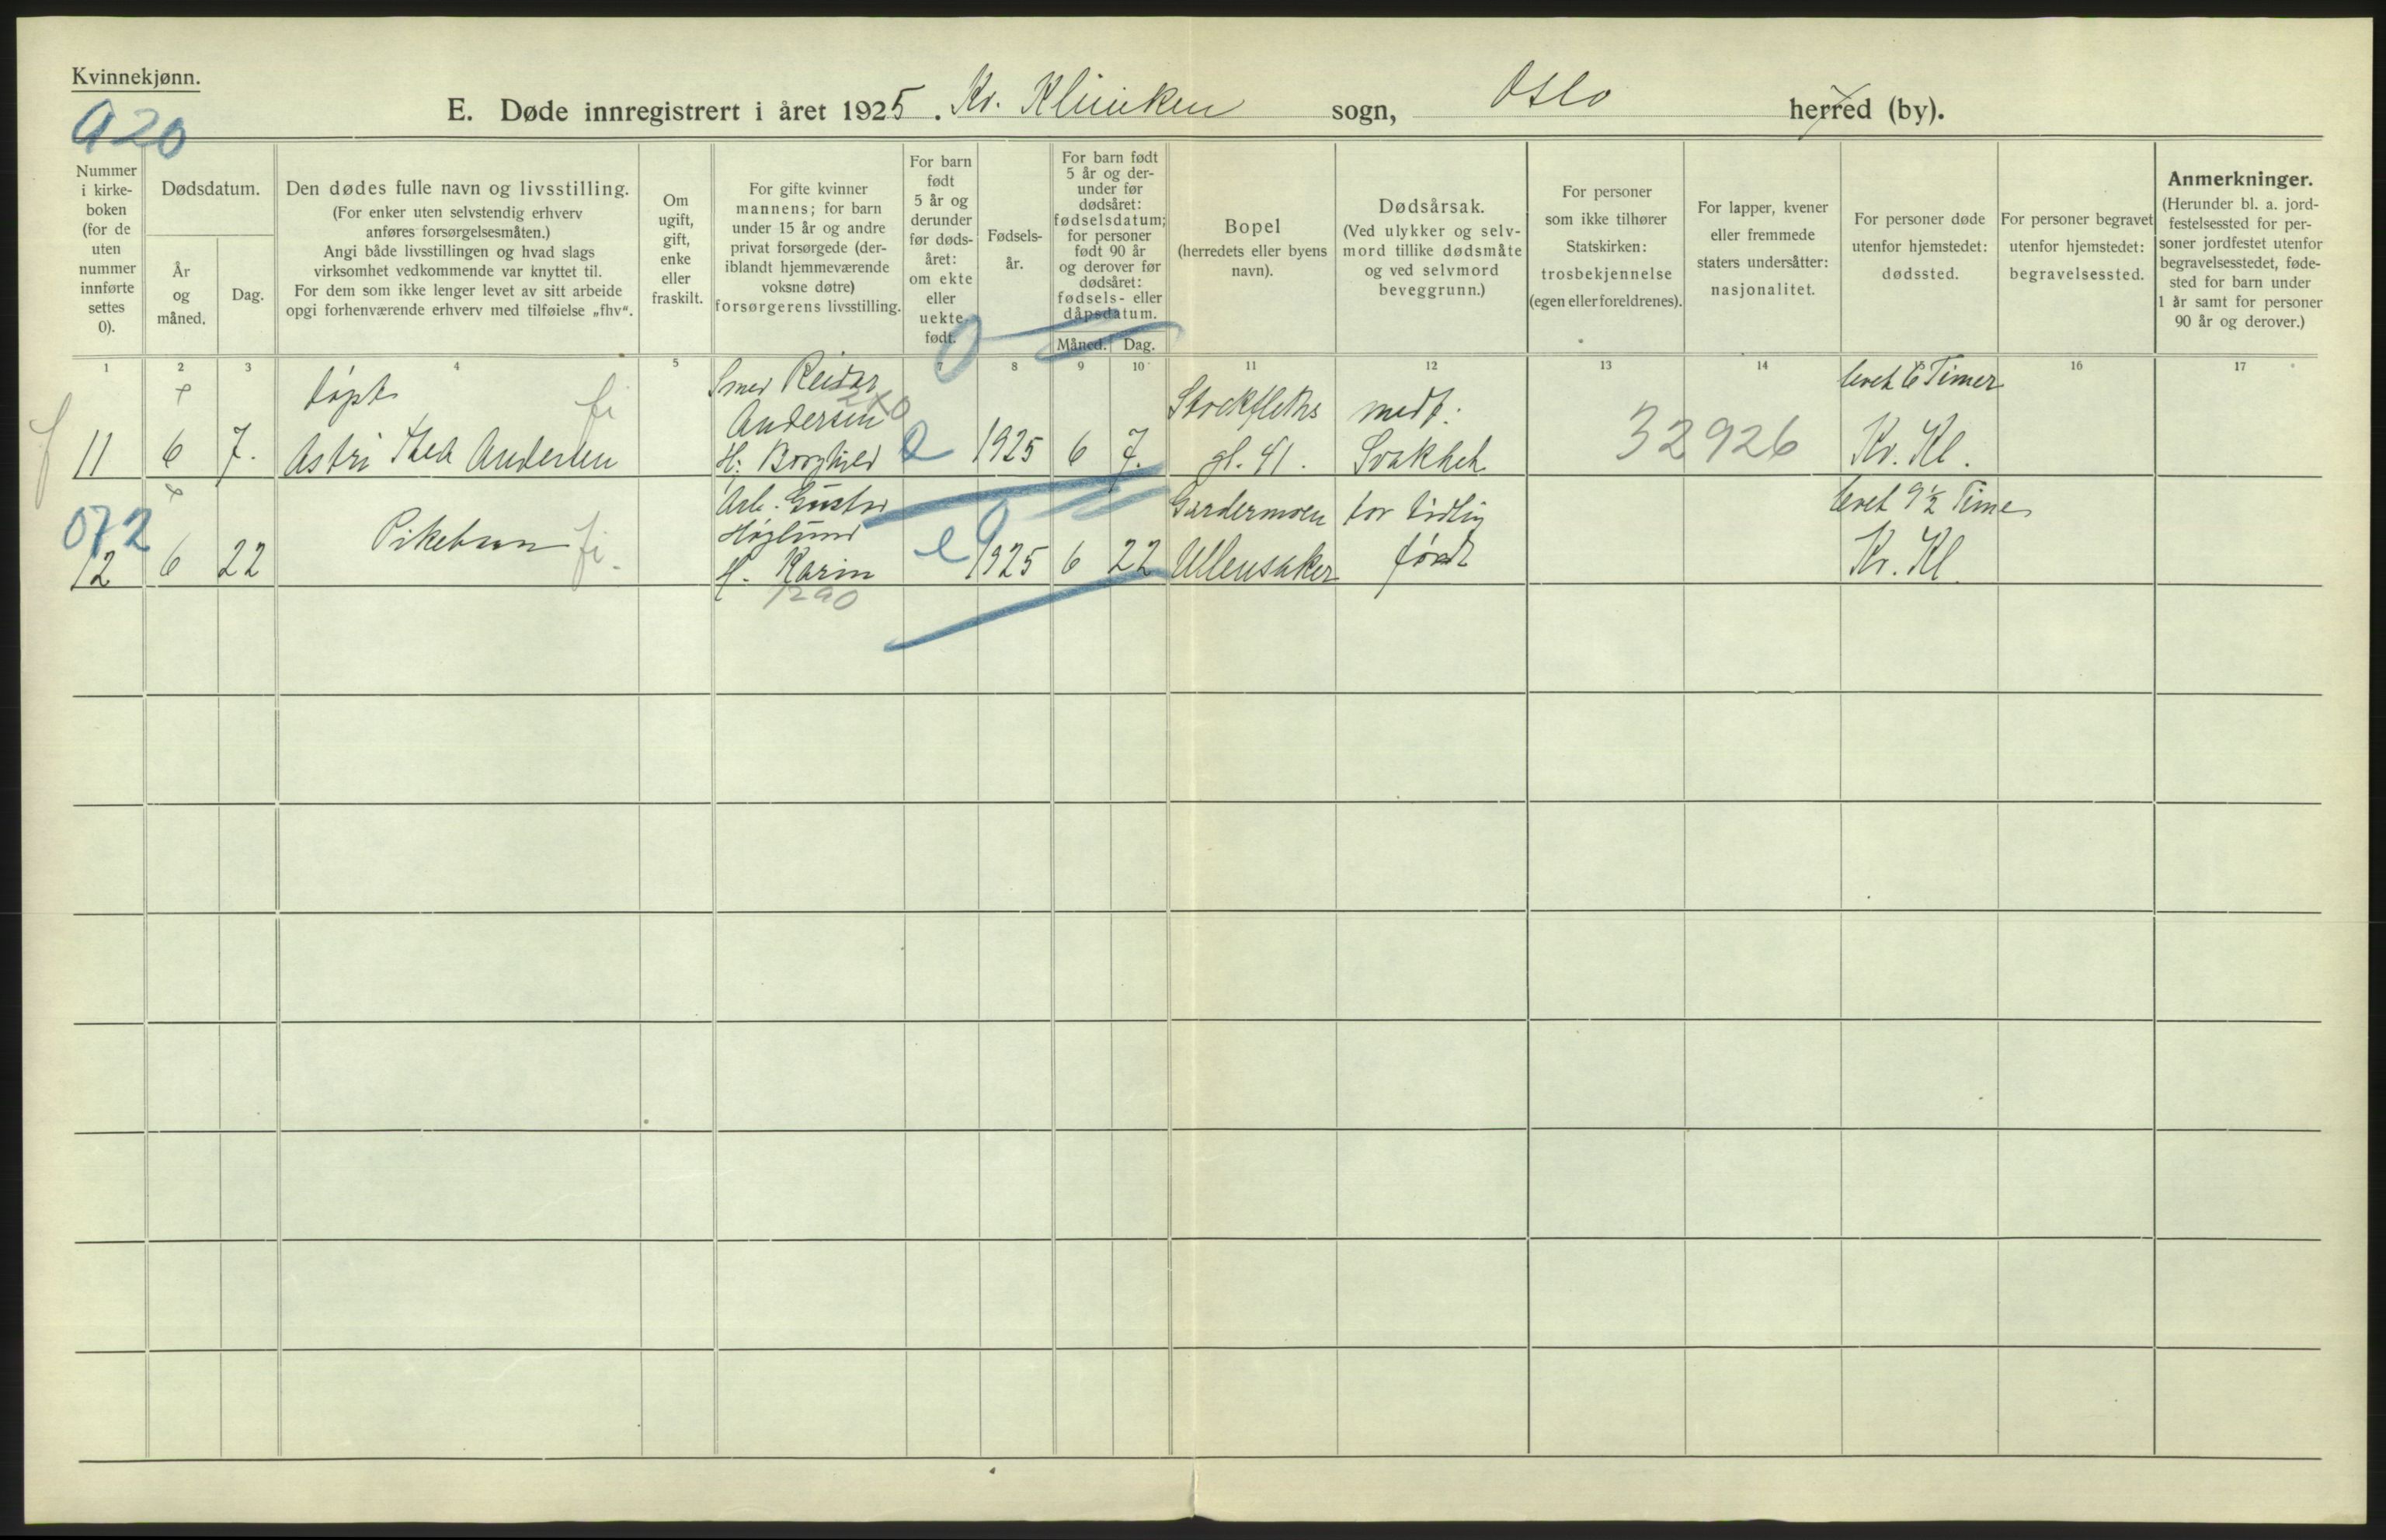 Kvinnekjønn.
a20
E. Døde innregistrert i året 1925. Kv. Kliniken sogn, Oslo herred (by).
Nummer
i kirke-
boken
(for de
uten
nummer
innførte
settes
0).
Dødsdatum.
År
og
måned.
Dag.
Den dødes fulle navn og livsstilling.
(For enker uten selvstendig erhverv
anføres forsørgelsesmåten.)
Angi både livsstillingen og hvad slags
virksomhet vedkommende var knyttet til.
For dem som ikke lenger levet av sitt arbeide
opgi forhenværende erhverv med tilføielse „fhv“.
Om
ugift,
gift,
enke
eller
fraskilt.
For gifte kvinner
mannens; for barn
under 15 år og andre
privat forsørgede (der-
iblandt hjemmeværende
voksne døtre)
forsørgerens livsstilling.
For barn
født
5 år og
derunder
før døds-
året:
om ekte
eller
uekte
født.
Fødsels-
år.
For barn født
5 år og der-
under før
dødsåret:
fødselsdatum;
for personer
født 90 år
og derover før
dødsåret:
fødsels- eller
dåpsdatum.
Måned. Dag.
Bopel
(herredets eller byens
navn).
Dødsårsak.
(Ved ulykker og selv-
mord tillike dødsmåte
og ved selvmord
beveggrunn.)
For personer
som ikke tilhører
Statskirken:
trosbekjennelse
(egen eller foreldrenes).
For lapper, kvener
eller fremmede
staters undersåtter:
nasjonalitet.
For personer døde
utenfor hjemstedet:
dødssted.
For personer begravet
utenfor hjemstedet:
begravelsessted.
Anmerkninger.
(Herunder bl. a. jord-
festelsessted for per-
soner jordfestet utenfor
begravelsesstedet, føde-
sted for barn under
1 år samt for personer
90 år og derover.)
1 2 3 4 5 7 8 9 10 11 12 13 14 15 16 17
døpt
Smed Reidar
Andersen
H: Borghild
Stockfleths
gt. 41.
medf.
Svakhet
levet 6 Timer
11 6 7. Astri Thea Andersen fi e 1925 6 7. 32926 Kv. Kl.
072
Arb. Gustav
Høglund
H. Karin
1290
Gardermoen
Ullensaker
for tidlig
født
levet 9½ Time
12 6 22 Pikebarn fi. e 1925 6 22 Kv. Kl.